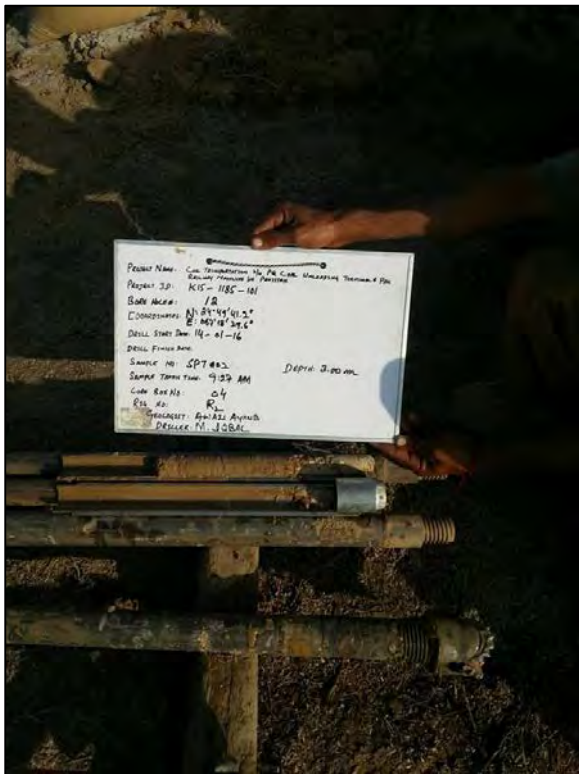 PROJECT NAME: COAL TRANSPORTATION PQ COAL UNLOADING TERMINAL & PAK
RAILWAY MAINLINE IN PAKISTAN
PROJECT I.D: K15-1185-101
BORE HOLE#: 12
COORDINATES: N: 24°49'41.2"
E: 067°18'29.6"
DRILL START DATE: 14-01-16
DRILL FINISH DATE:
SAMPLE NO: SPT #02 DEPTH: 3.00 m
SAMPLE TAKEN TIME: 9:27 AM
CORE BOX NO: 04
RIG NO: R2
GEOLOGIST: AYUB
DRILLER: M. IQBAL